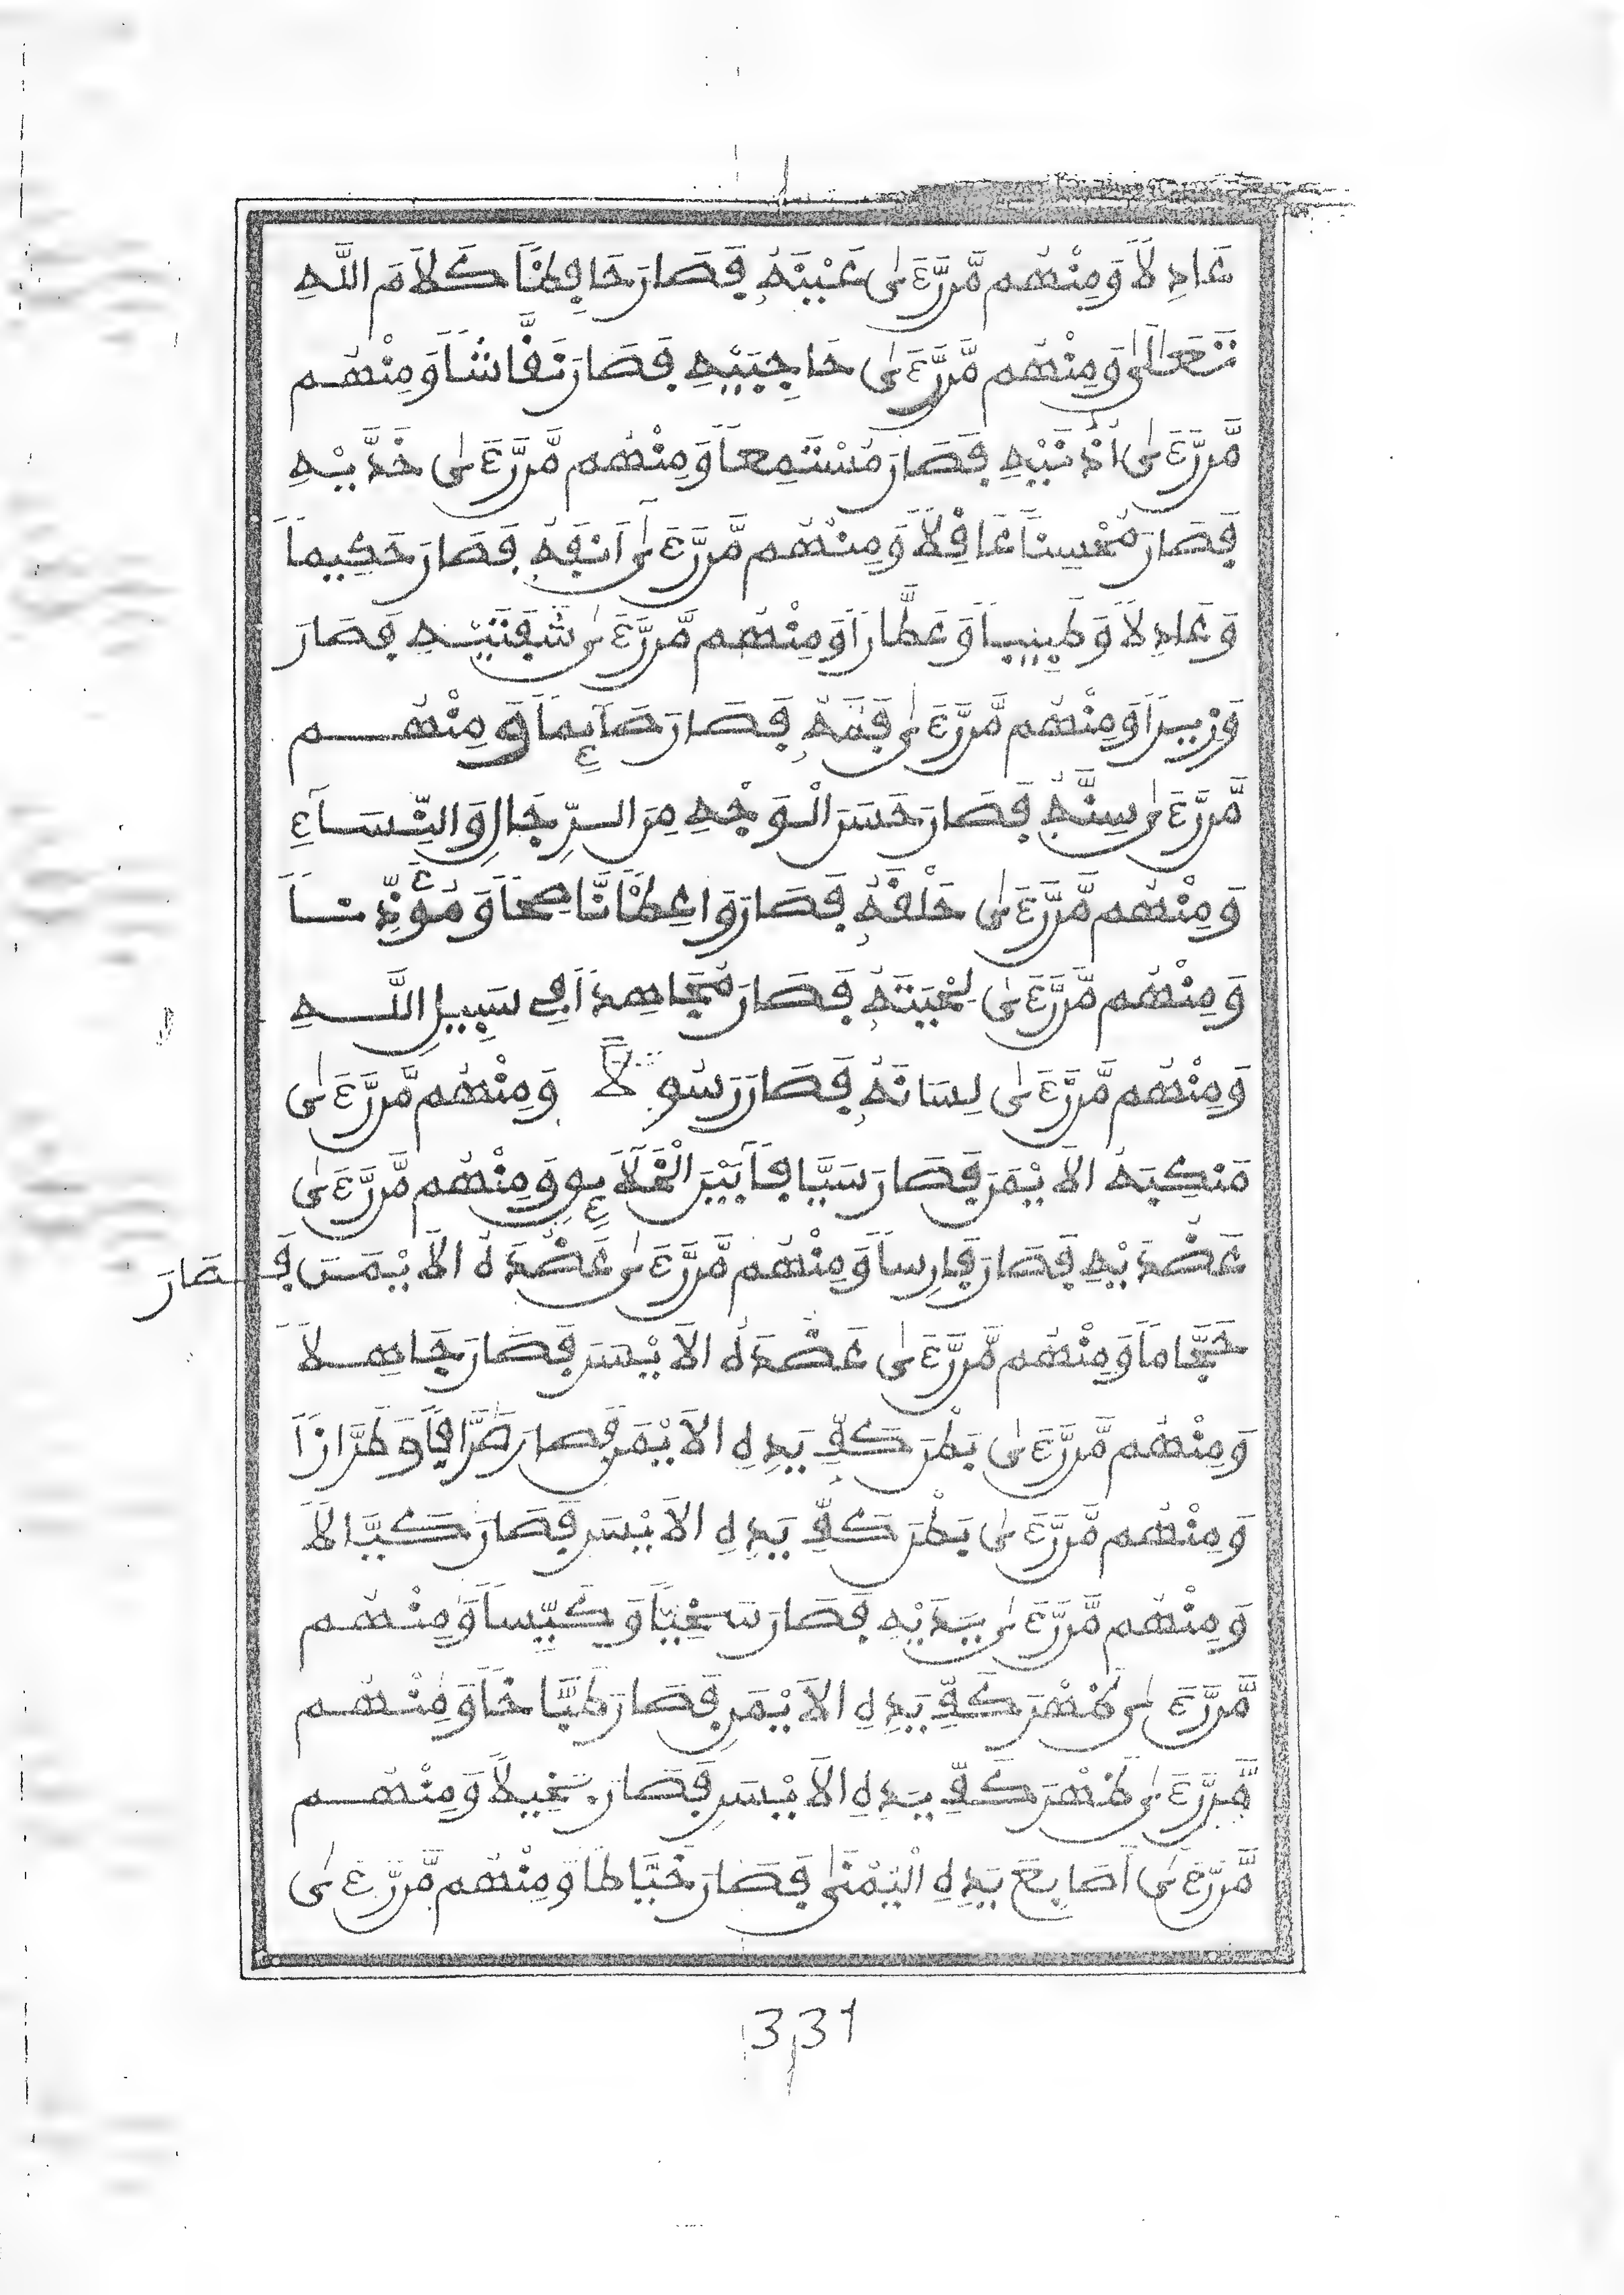 عَادِلاً وَمِنْهُم مَّن رَّءَىٰ عَيْنَهُ فَصَارَ حَافِظاً كَلاَمَ اللَّهِ
تَعَالَىٰ وَمِنْهُم مَّن رَّءَىٰ حَاجِبَيْهِ فَصَارَ نَقَّاشاً وَمِنْهُم
مَّن رَّءَىٰ أُذُنَيْهِ فَصَارَ مُسْتَمِعاً وَمِنْهُم مَّن رَّءَىٰ خَدَّيْهِ
فَصَارَ مُحْسِناً عَاقِلاً وَمِنْهُم مَّن رَّءَىٰ أَنفَهُ فَصَارَ حَكِيماً
وَعَادِلاً وَطَبِيباً وَعَطَّاراً وَمِنْهُم مَّن رَّءَىٰ شَفَتَيْهِ فَصَارَ
وَزِيراً وَمِنْهُم مَّن رَّءَىٰ فَمَهُ فَصَارَ صَآئِماً وَمِنْهُم
مَّن رَّءَىٰ سِنَّهُ فَصَارَ حَسَنَ الْوَجْهِ مِنَ الرِّجَالِ وَالنِّسَآءِ
وَمِنْهُم مَّن رَّءَىٰ حَلْقَهُ فَصَارَ وَاعِظاً نَّاصِحاً وَمُؤَذِّناً
وَمِنْهُم مَّن رَّءَىٰ لِحْيَتَهُ فَصَارَ مُجَاهِداً فِي سَبِيلِ اللَّهِ
وَمِنْهُم مَّن رَّءَىٰ لِسَانَهُ فَصَارَ رَسُولاً وَمِنْهُم مَّن رَّءَىٰ
مَنكِبَهُ الأَيْمَنَ فَصَارَ سَيَّافاً بَيْنَ الْخَلاَئِقِ وَمِنْهُم مَّن رَّءَىٰ
عَضُدَيْهِ فَصَارَ فَارِساً وَمِنْهُم مَّن رَّءَىٰ عَضُدَهُ الأَيْمَنَ فَصَارَ
حَجَّاماً وَمِنْهُم مَّن رَّءَىٰ عَضُدَهُ الأَيْسَرَ فَصَارَ جَاهِلاً
وَمِنْهُم مَّن رَّءَىٰ بَطْنَ كَفِّ يَدِهِ الأَيْمَنِ فَصَارَ صَرَّافاً وَطَرَّازاً
وَمِنْهُم مَّن رَّءَىٰ بَطْنَ كَفِّ يَدِهِ الأَيْسَرِ فَصَارَ كَيَّالاً
وَمِنْهُم مَّن رَّءَىٰ يَدَيْهِ فَصَارَ سَخِيّاً وَكَيِّساً وَمِنْهُم
مَّن رَّءَىٰ ظَهْرَ كَفِّ يَدِهِ الأَيْمَنِ فَصَارَ طَبَّاخاً وَمِنْهُم
مَّن رَّءَىٰ ظَهْرَ كَفِّ يَدِهِ الأَيْسَرِ فَصَارَ بَخِيلاً وَمِنْهُم
مَّن رَّءَىٰ أَصَابِعَ يَدِهِ الْيُمْنَىٰ فَصَارَ خَيَّاطاً وَمِنْهُم مَّن رَّءَىٰ
331